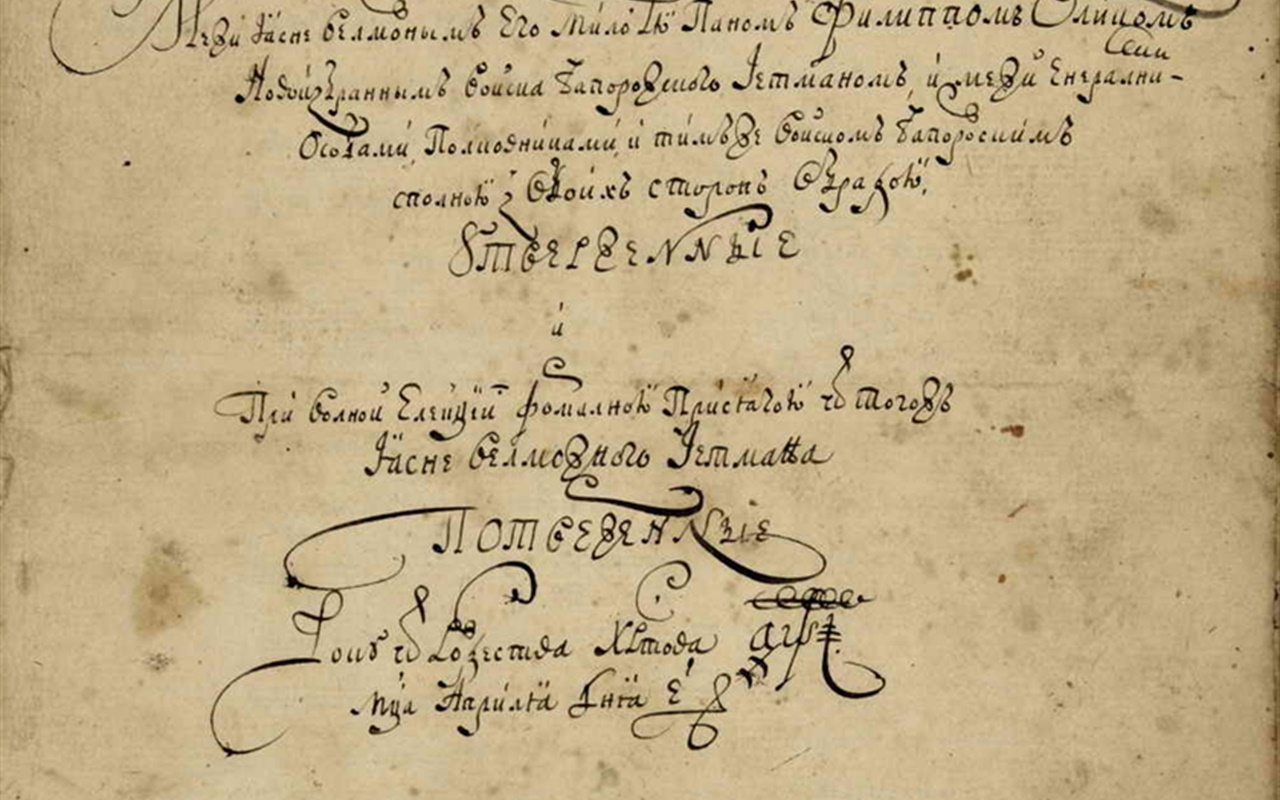 Межи Ясне велможнымъ Его Милостю Паномъ Филиппомъ Орликомъ
Новоизбраннымъ Войска Запорожского Гетманомъ, и межи Енералними
Особами, Полковниками, и тимъже Войскомъ Запорожскимъ
сполною з обоихъ сторонъ Обрадою,
Ꙋтверженные
и
При волной Елекцїи Фо<wbr>малною Присягою ѿ тогожъ
Ясне велможного Гетмана
Потверженные
Рокꙋ ѿ Рожества Христова ҂аѱі
мца Априля дня е҃